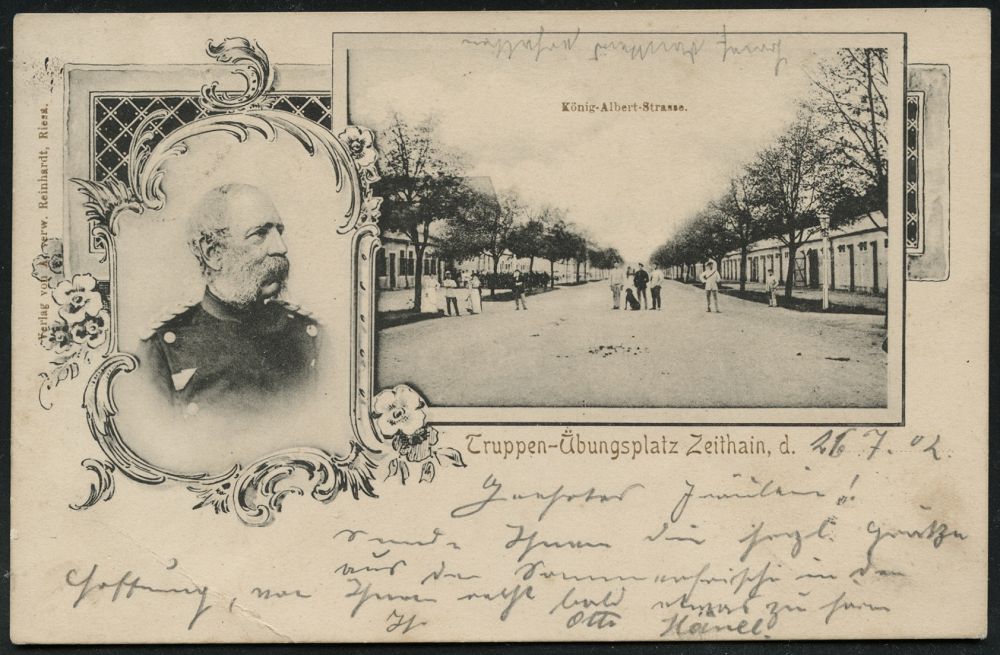 König-Albert-Strasse.
Verlag von Reinhardt, Riesa.
Truppen-Übungsplatz Zeithain, d. 26 7. 02.
Geehrtes Fräulein!
Sende Ihnen die herzl. Grüße
aus der Sommerfrische in der
Hoffnung, von Ihnen recht bald etwas zu hören
Ihr Otto Hänel.